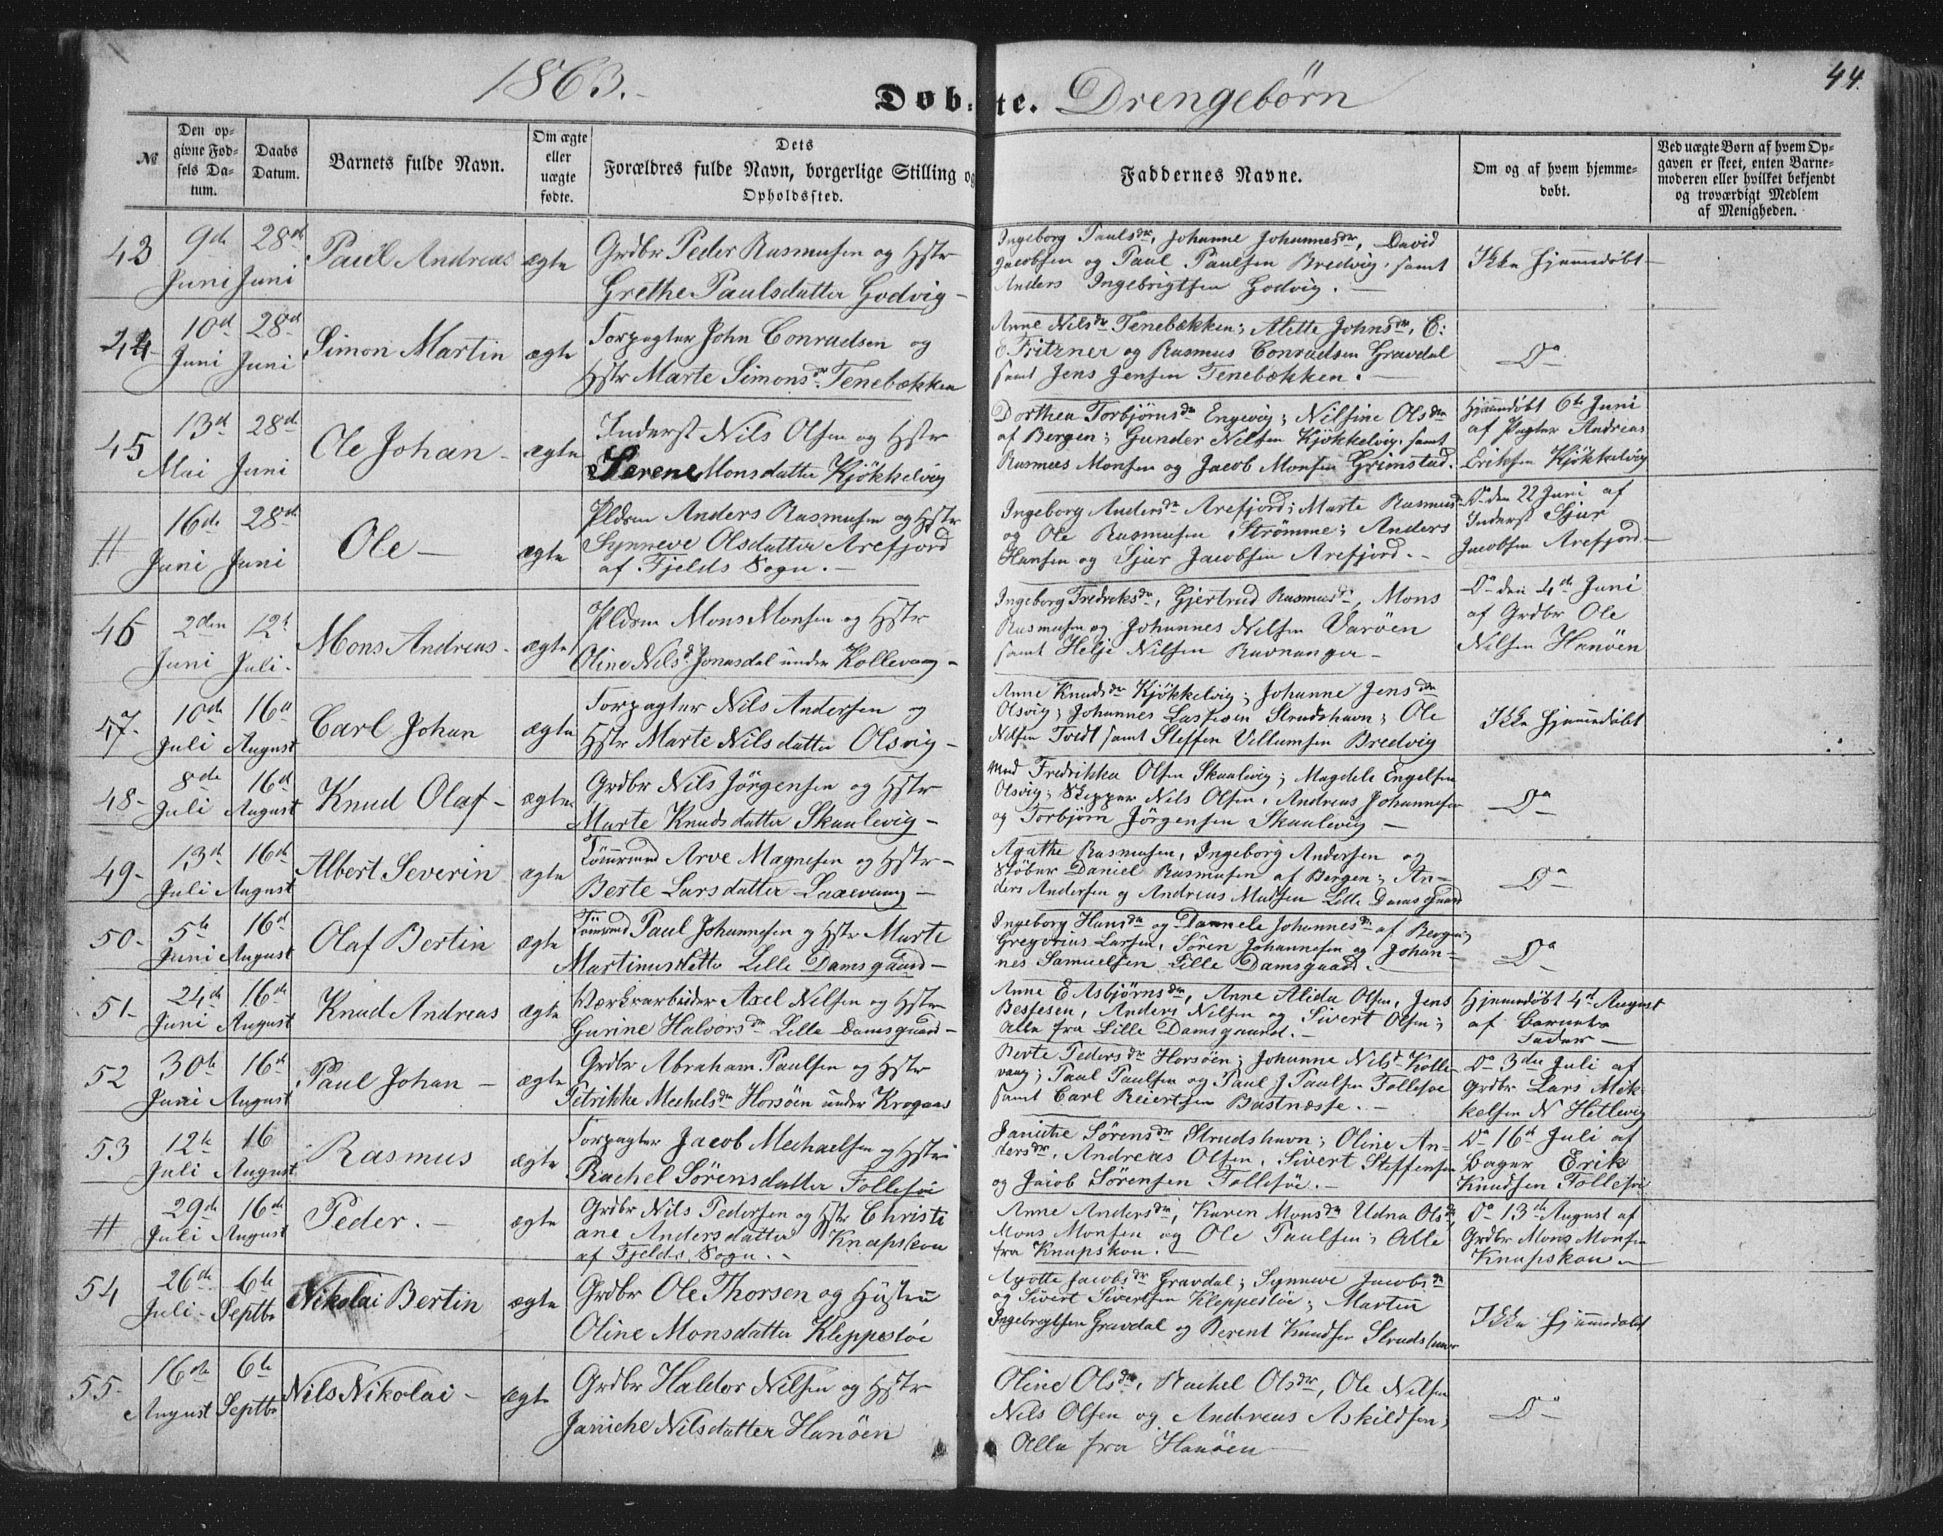 1863.
Døbte. Drengebørn
44.
№
Den opgivne Fødsels Datum.
Daabs Datum.
Barnets fulde Navn.
Om ægte eller uægte fødte.
Dets Forældres fulde Navn, borgerlige Stilling og Opholdssted.
Faddernes Navne.
Om og af hvem hjemmedøbt.
Ved uægte Børn af hvem Opgaven er skeet, enten Barnemoderen eller hvilket bekjendt og troværdigt Medlem af Menigheden.
43
9de Juni
28de Juni
Paul Andreas
ægte
Grdbr Peder Rasmusen og Hstr
Grethe Paulsdatter Godvig -
Ingeborg Paulsdr, Johanne Johannesdr, David
Jacobsen og Paul Paulsen Bredvig, samt
Anders Ingebrigtsen Godvig. -
Ikke hjemmedøbt -
44
10d Juni
28d Juni
Simon Martin
ægte
Forpagter John Conradsen og
Hstr Marte Simonsdr Tenebækken
Anne Nilsdr Tenebækken; Alette Johnsdr, E:
Fritzner og Rasmus Conradsen Gravdal
samt Jens Jensen Tenebækken. -
Do -
45
13d Mai
28d Juni
Ole Johan -
ægte
Inderst Nils Olsen og Hstr
Serene Monsdatter Kjøkkelvig
Dorthea Torbjørnsdr Engevig; Nilsine Olsdr
af Bergen; Gunder Nilsen Kjøkkelvig, samt
Rasmus Monsen og Jacob Monsen Grimstad.
Hjemmedøbt 6te Juni
af Pagter Andreas
Eriksen Kjøkkelvig
"
16de Juni
28de Juni
Ole -
ægte
Pldsm Anders Rasmusen og Hstr
Synneve Olsdatter Arefjord
af Fjelds Sogn. -
Ingeborg Andersdr Arefjord; Marte Rasmusd
og Ole Rasmusen Strømme; Anders
Hansen og Sjur Jacobsen Arefjord. -
Do den 22 Juni af
Inderst Sjur
Jacobsen Arefjord. -
46
2den Juni
12t Juli -
Mons Andreas -
ægte
Pldsm Mons Monsen og Hstr
Oline Nilsd. Jonasdal under Kollevaag -
Ingeborg Fredriksdr, Gjertrud Rasmusdr, Mons
Rasmusen og Johannes Nilsen Varøen
samt Helje Nilsen Ravnanger -
Do den 4de Juni
af Grdbr Ole
Nilsen Hanøen
47 -
10de Juli
16d August
Carl Johan
ægte
Forpagter Nils Andersen og
Hstr Marte Nilsdatter Olsvig -
Anne Knudsdr Kjøkkelvig; Johanne Jensdr
Olsvig; Johannes Lassesen Strudshavn; Ole
Nilsen Tvedt samt Steffen Villumsen Bredvig
Ikke hjemmedøbt
48 -
8de Juli
16d August
Knud Olaf -
ægte
Grdbr Nils Jørgensen og Hstr
Marte Knudsdatter Skaalevig -
Mad Fredrikke Olsen Skaalevig; Magdele Engelsen
Olsvig; Skipper Nils Olsen, Andreas Johannesen
og Torbjørn Jørgensen Skaalevig -
Do
49 -
13de Juli
16de August
Albert Severin
ægte
Tømrmd Arve Magnesen og Hstr -
Berte Larsdatter Laxevaag -
Agathe Rasmusen, Ingeborg Andersen og
Støber Daniel Rasmusen af Bergen; An-
ders Andersen og Andreas Madsen Lille Damsgaard
Do -
50 -
5te Juni
16d August
Olaf Bertin
ægte
Tømrmd Paul Johannesen og Hstr Marte
Martinusdatter Lille Damsgaard -
Ingeborg Hansdr og Dannele Johannesdr af Bergen;
Gregorius Larsen, Søren Johannesen og Johan-
nes Samuelsen Lille Damsgaard. -
Do -
51 -
24de Juni
16de August
Knud Andreas
ægte
Værksarbeider Axel Nilsen og Hstr
Gurine Halvorsdr Lille Damsgaard -
Anne E Asbjørnsdr, Anne Alida Olsen, Jens
Bessesen, Anders Nilsen og Sivert Olsen;
Alle fra Lille Damsgaard. -
Hjemmedøbt 4de August
af Barnets
Fader -
52
30te Juni
16d August
Paul Johan -
ægte
Grdbr Abraham Paulsen og Hstr
Petrikke Mechelsdr Horsøen under Krogaas
Berte Pedersdr Horsøen; Johanne Nilsd Kolle-
vaag; Paul Paulsen og Paul J Paulsen Follesøe
samt Carl Reiertsen Bastnæsse. -
Do 3die Juli af
Grdbr Lars Mik-
kelsen N Hetlevig
53
12te Juli
16 August
Rasmus
ægte
Forpagter Jacob Mechaelsen og Hstr
Rachel Sørensdatter Follesøe
Janiche Sørensdr Strudshavn; Oline An-
dersdr, Andreas Olsen, Sivert Steffensen
og Jacob Sørensen Follesøe. -
Do 16d Juli af
Bager Erik
Knudsen Follesøe
"
29de Juli
16de August
Peder. -
ægte
Grdbr Nils Pedersen og Hstr Christi
ane Andersdatter Knapskou
af Fjelds Sogn. -
Anne Andersdr, Karen Monsdr Udna Olsdr,
Mons Monsen og Ole Paulsen; Alle
fra Knapskou. -
Do 13de August af
Grdbr Mons Monsen
Knapskou -
54
26de Juli -
6te Septbr
Nikolai Bertin
ægte
Grdbr Ole Thorsen og Hustru
Oline Monsdatter Kleppesøe
Agotte Jacobsdr Gravdal; Synneve Jacobsdr
og Sivert Sivertsen Kleppesøe; Martin
Ingebrigtsen Gravdal og Berent Knudsen Strudshavn
Ikke hjemmedøbt
55 -
16de August
6te Septbr
Nils Nikolai -
ægte
Grdbr Haldor Nilsen og Hstr
Janiche Nilsdatter Hanøen
Oline Olsdr, Rachel Olsdr, Ole Nilsen
Nils Olsen og Andreas Askildsen;
Alle fra Hanøen -
Do -